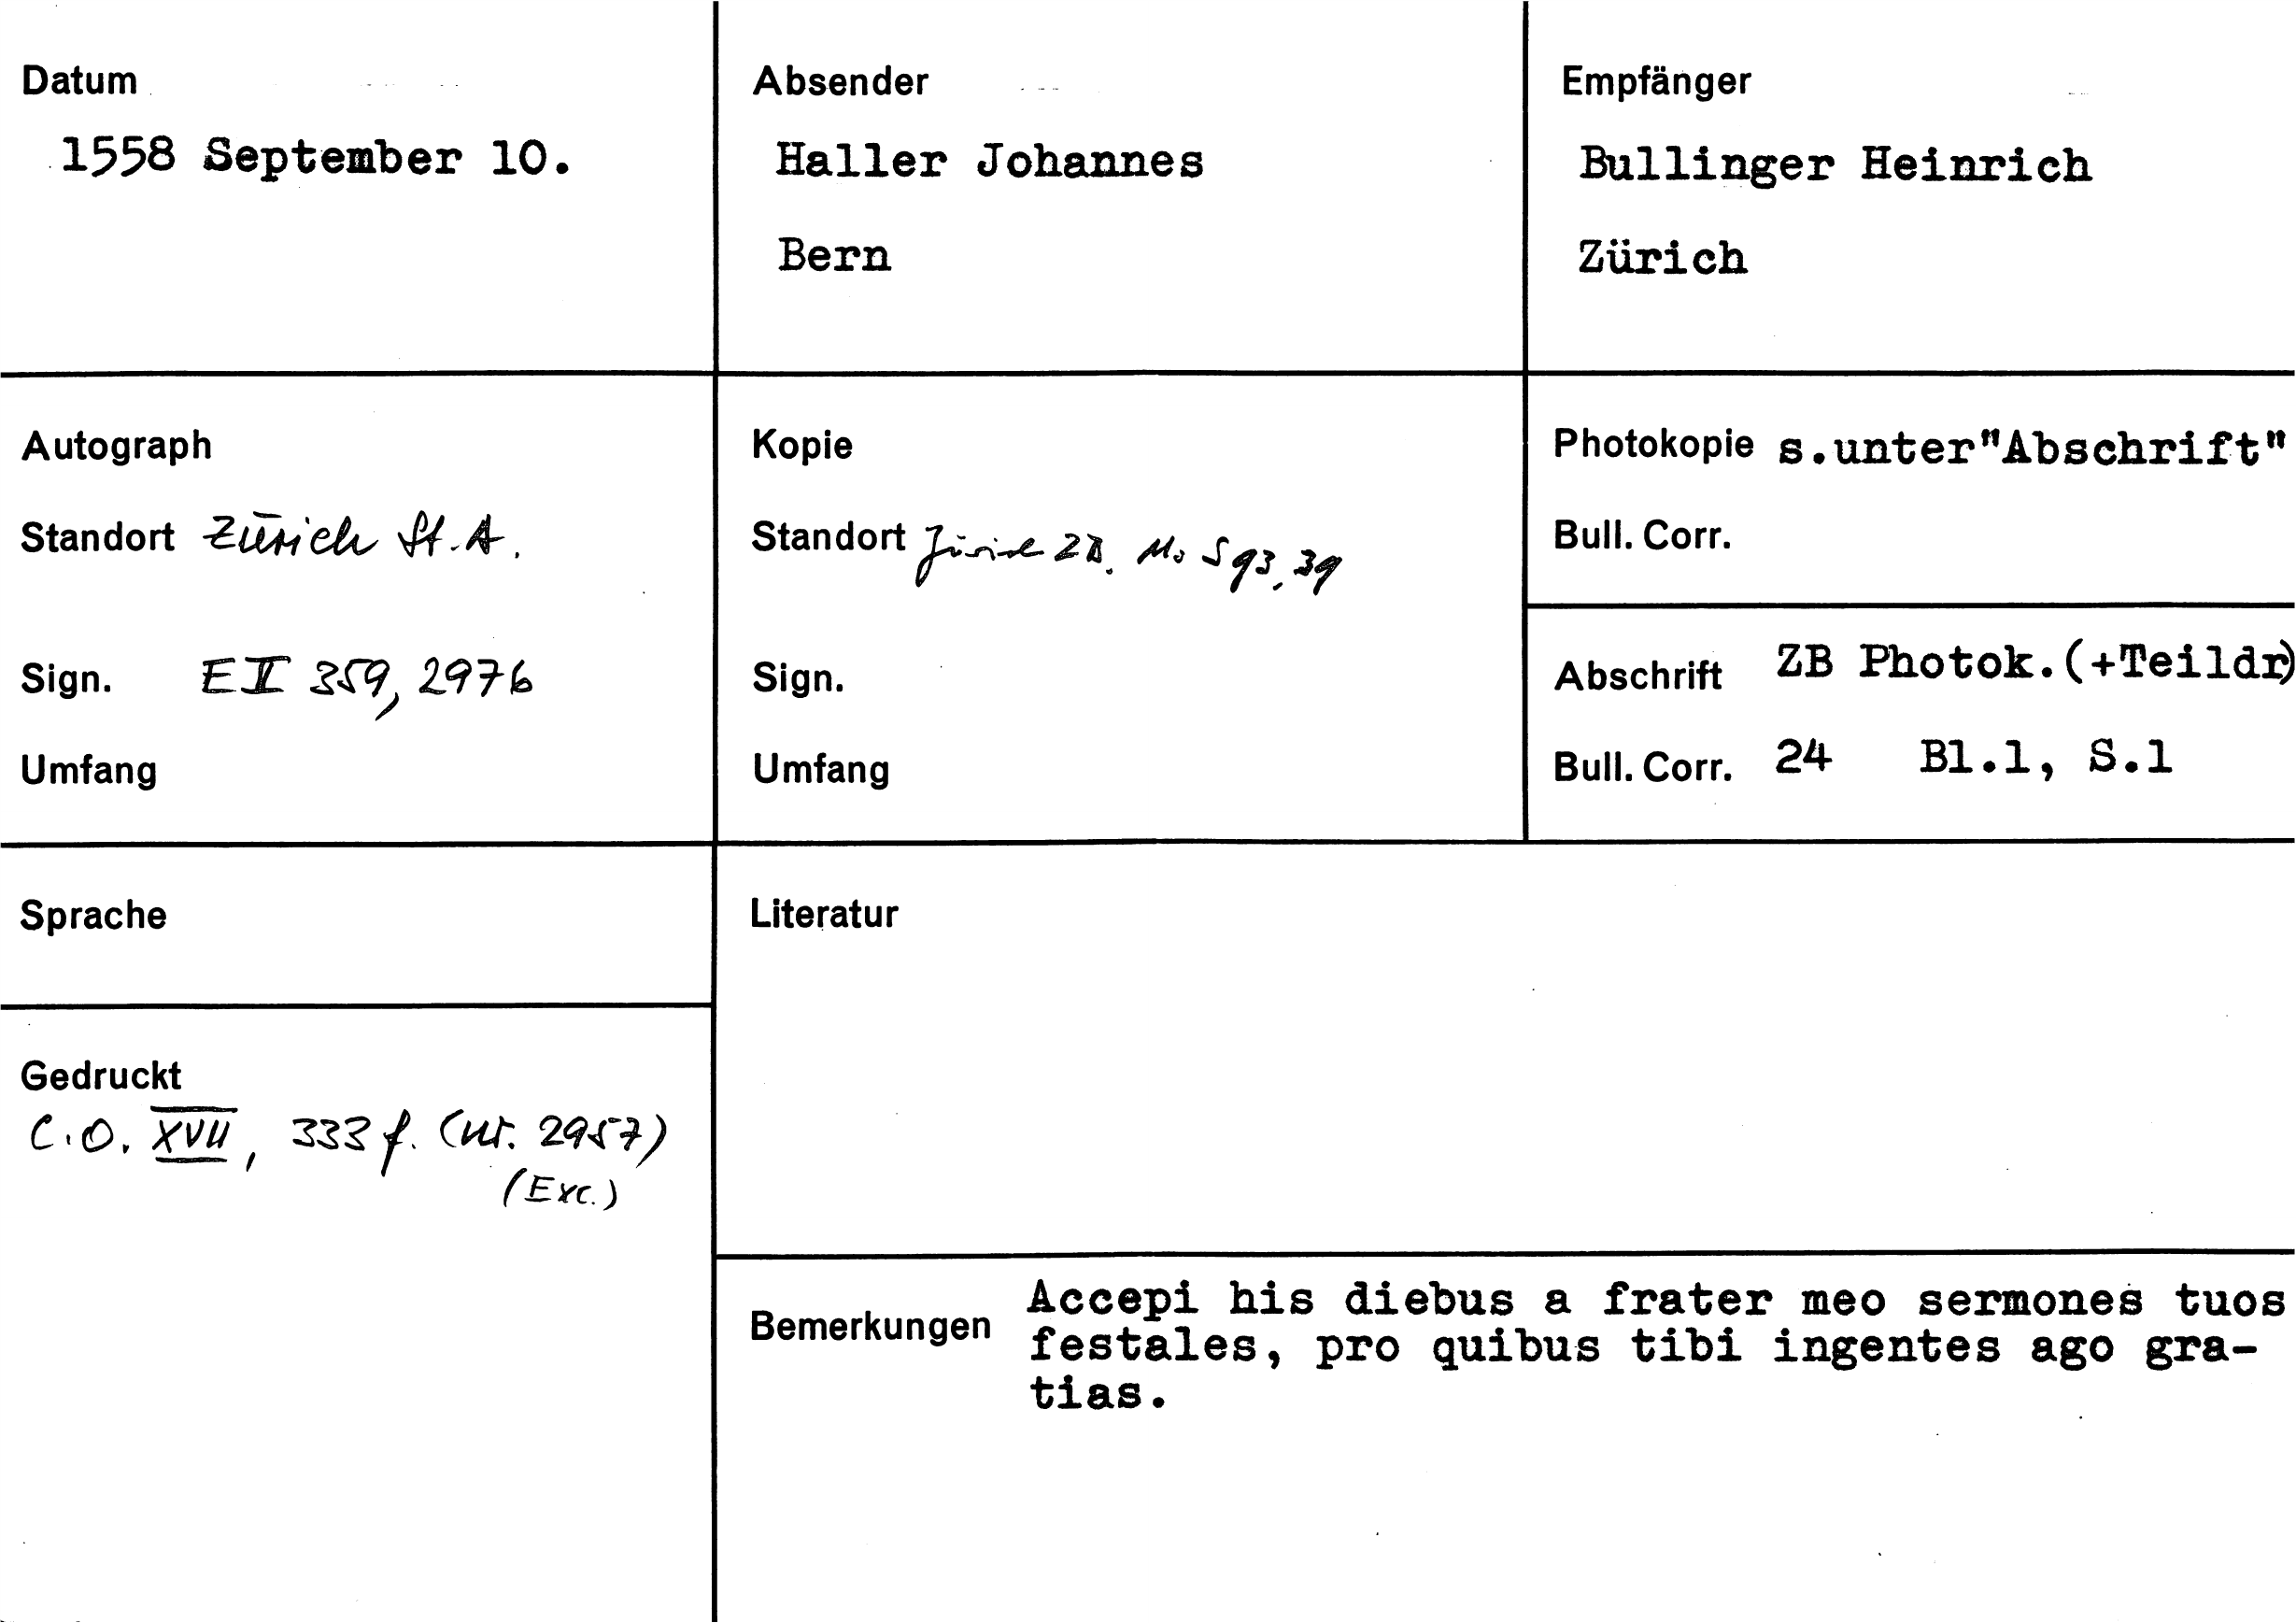 Datum
1558 September 10.
Absender
Haller Johannes
Bern
Empfänger
Bullinger Heinrich
Zürich
Autograph
Standort Zürich St. A.
Sign. E II 359, 2976
Umfang
Kopie
Standort Zürich ZB. Ms S 93, 39
Sign.
Umfang
Photokopie s.unter"Abschrift"
Bull. Corr.
Abschrift ZB Photok.(+Teildr)
Bull. Corr. 24 Bl.1, S.1
Sprache
Literatur
Gedruckt
C.O. XVII, 333 f. (Nr. 2957)
(Exc.)
Bemerkungen
Accepi his diebus a frater meo sermones tuos
festales, pro quibus tibi ingentes ago gra-
tias.